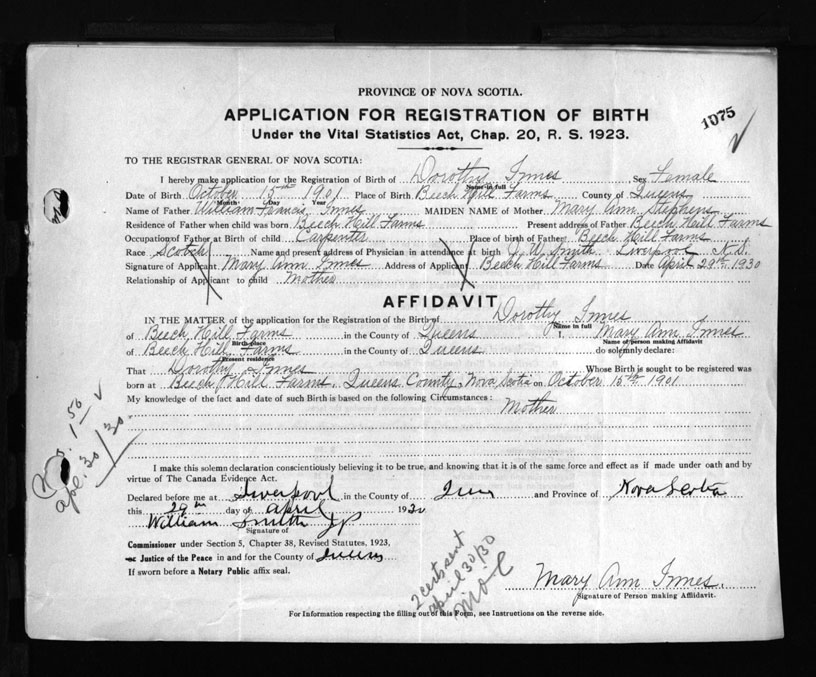 PROVINCE OF NOVA SCOTIA.
APPLICATION FOR REGISTRATION OF BIRTH
1075
Under the Vital Statistics Act, Chap. 20, R. S. 1923.
TO THE REGISTRAR GENERAL OF NOVA SCOTIA:
I hereby make application for the Registration of Birth of Dorothy Innes Sex Female
Name in full
Date of Birth October 15th 1901 Place of Birth Beech Hill Farms County of Queens
Month Day Year
Name of Father William Francis Innes MAIDEN NAME of Mother Mary Ann Stephens
Residence of Father when child was born Beech Hill Farms Present address of Father Beech Hill Farms
Occupation of Father at Birth of child Carpenter Place of birth of Father Beech Hill Farms
Race Scotch Name and present address of Physician in attendance at birth J. W. Smith Liverpool N.S.
Signature of Applicant Mary Ann Innes Address of Applicant Beech Hill Farms Date April 29th 1930
Relationship of Applicant to child Mother
AFFIDAVIT
IN THE MATTER of the application for the Registration of the Birth of Dorothy Innes
Name in full
of Beech Hill Farms in the County of Queens I, Mary Ann Innes
Birth-place Name of person making Affidavit
of Beech Hill Farms in the County of Queens do solemnly declare:
Present residence
That Dorothy Innes Whose Birth is sought to be registered was
born at Beech Hill Farms, Queens County, Nova Scotia on October 15th 1901
My knowledge of the fact and date of such Birth is based on the following Circumstances:
Mother
1.50
apl. 30/30
I make this solemn declaration conscientiously believing it to be true, and knowing that it is of the same force and effect as if made under oath and by
virtue of The Canada Evidence Act.
Declared before me at Liverpool in the County of Queens and Province of Nova Scotia
this 29th day of April 1930
William Smith JP
Signature of
Commissioner under Section 5, Chapter 38, Revised Statutes, 1923,
or Justice of the Peace in and for the County of Queens
If sworn before a Notary Public affix seal.
2 certs sent
april 30/30
Mary Ann Innes.
Signature of Person making Affidavit.
For Information respecting the filling out of this Form, see Instructions on the reverse side.